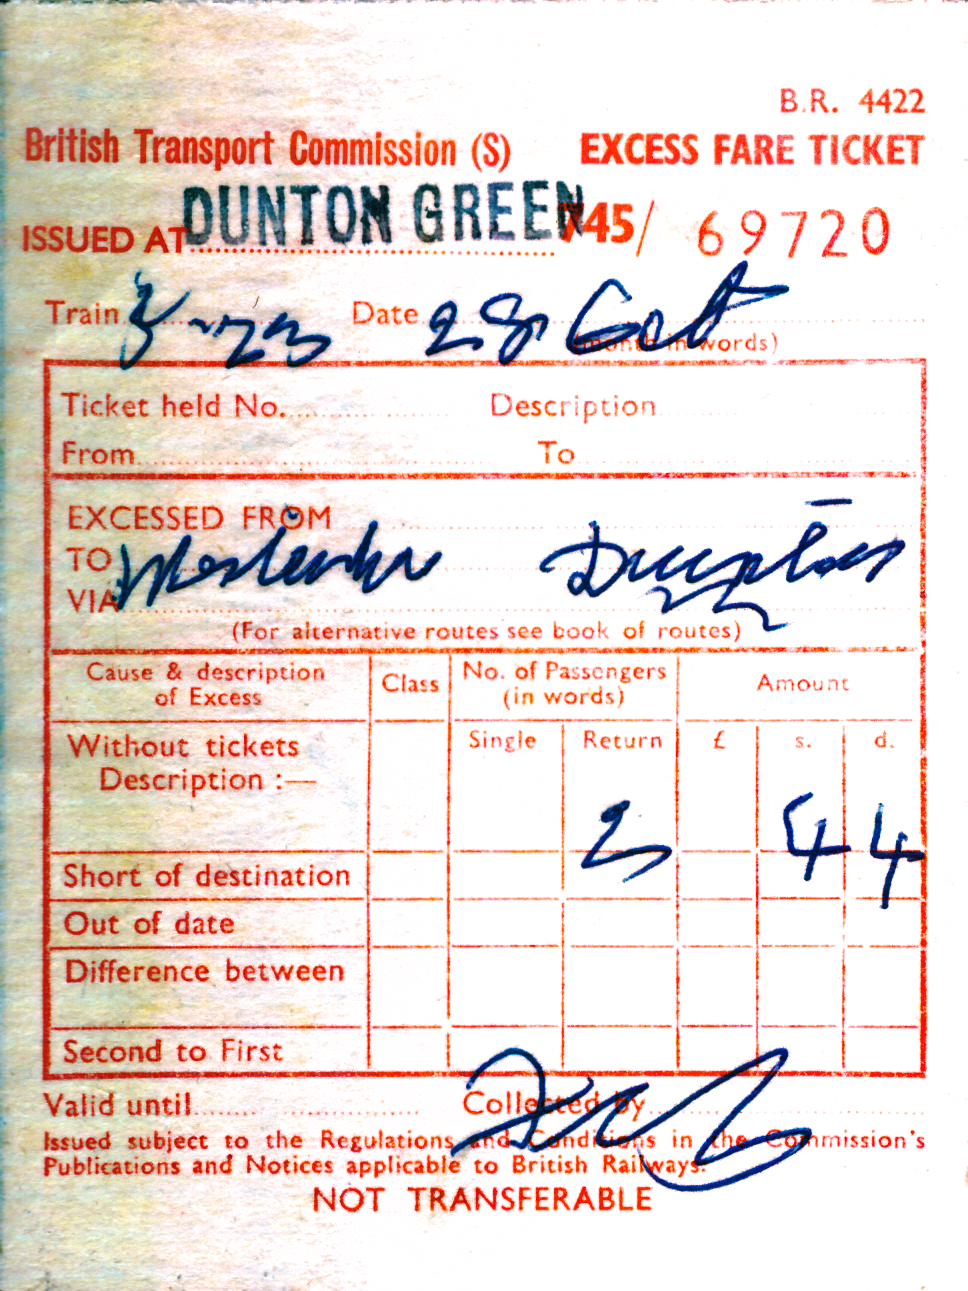 B.R. 4422
British Transport Commission (S) EXCESS FARE TICKET
ISSUED AT DUNTON GREEN 745/ 69720
Train Date 28 Oct
(month in words)
Ticket held No. Description
From To
EXCESSED FROM
TO Westerham Dunton
VIA
(For alternative routes see book of routes)
Cause & description of Excess Class No. of Passengers (in words) Amount
Without tickets Single Return £ s. d.
Description :—
2 4 4
Short of destination
Out of date
Difference between
Second to First
Valid until Collected by
Issued subject to the Regulations and Conditions in the Commission's
Publications and Notices applicable to British Railways.
NOT TRANSFERABLE